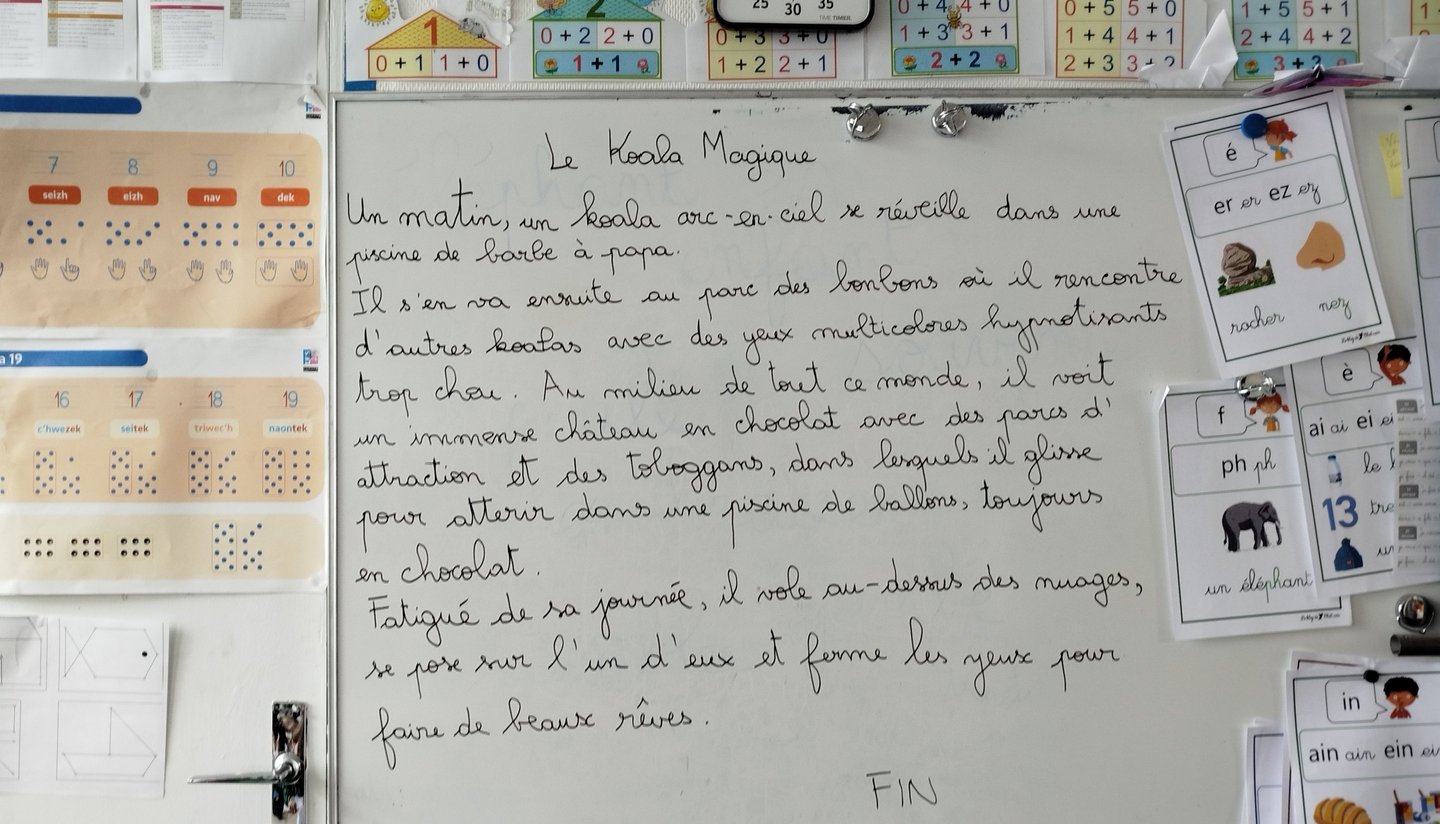 25 30 35
TIME TIMER
1
0 + 1 1 + 0
2
0 + 2 2 + 0
1 + 1
0 + 3 3 + 0
1 + 2 2 + 1
0 + 4 4 + 0
1 + 3 3 + 1
2 + 2
0 + 5 5 + 0
1 + 4 4 + 1
2 + 3 3 + 2
1 + 5 5 + 1
2 + 4 4 + 2
3 + 3
7 8 9 10
seizh eizh nav dek
a 19
16 17 18 19
c'hwezek seitek triwec'h naontek
Le Koala Magique
Un matin, un koala arc-en-ciel se réveille dans une
piscine de barbe à papa.
Il s'en va ensuite au parc des bonbons où il rencontre
d'autres koalas avec des yeux multicolores hypnotisants
trop chou. Au milieu de tout ce monde, il voit
un immense château en chocolat avec des parcs d'
attraction et des toboggans, dans lesquels il glisse
pour atterir dans une piscine de ballons, toujours
en chocolat.
Fatigué de sa journée, il vole au-dessus des nuages,
se pose sur l'un d'eux et ferme les yeux pour
faire de beaux rêves.
FIN
é
er er ez ez
rocher nez
f
ph ph
un éléphant
è
ai ai ei ei
le
13 tre
un
in
ain ain ein ei